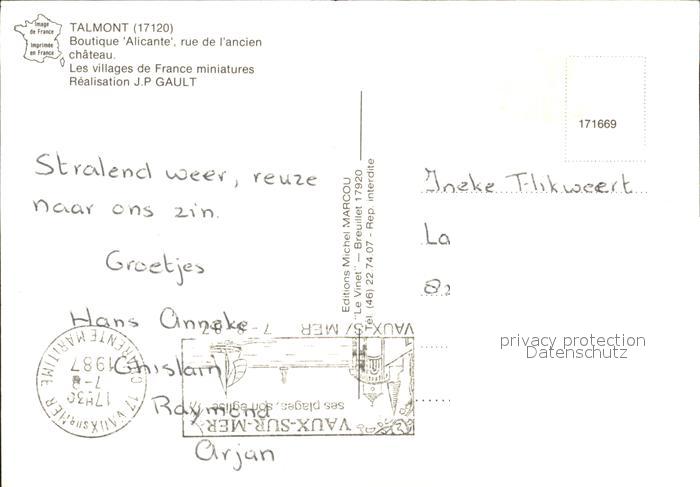 Image
de France
Imprimée
en France
TALMONT (17120)
Boutique 'Alicante', rue de l'ancien
château.
Les villages de France miniatures
Réalisation J.P GAULT
171669
Stralend weer, reuze
naar ons zin.
Groetjes
Hans Anneke
Ghislain
Raymond
Arjan
Editions Michel MARCOU
"Le Vinet" — Breuillet 17920
Tél. (46) 22 74 07 - Rep. interdite
Ineke Flikweert
La
82
privacy protection
Datenschutz
17 VAUX SUR MER
17H30
7-8
1987
CHARENTE MARITIME
VAUX-SUR-MER
ses plages, son église
VAUX S/ MER 7-8-87